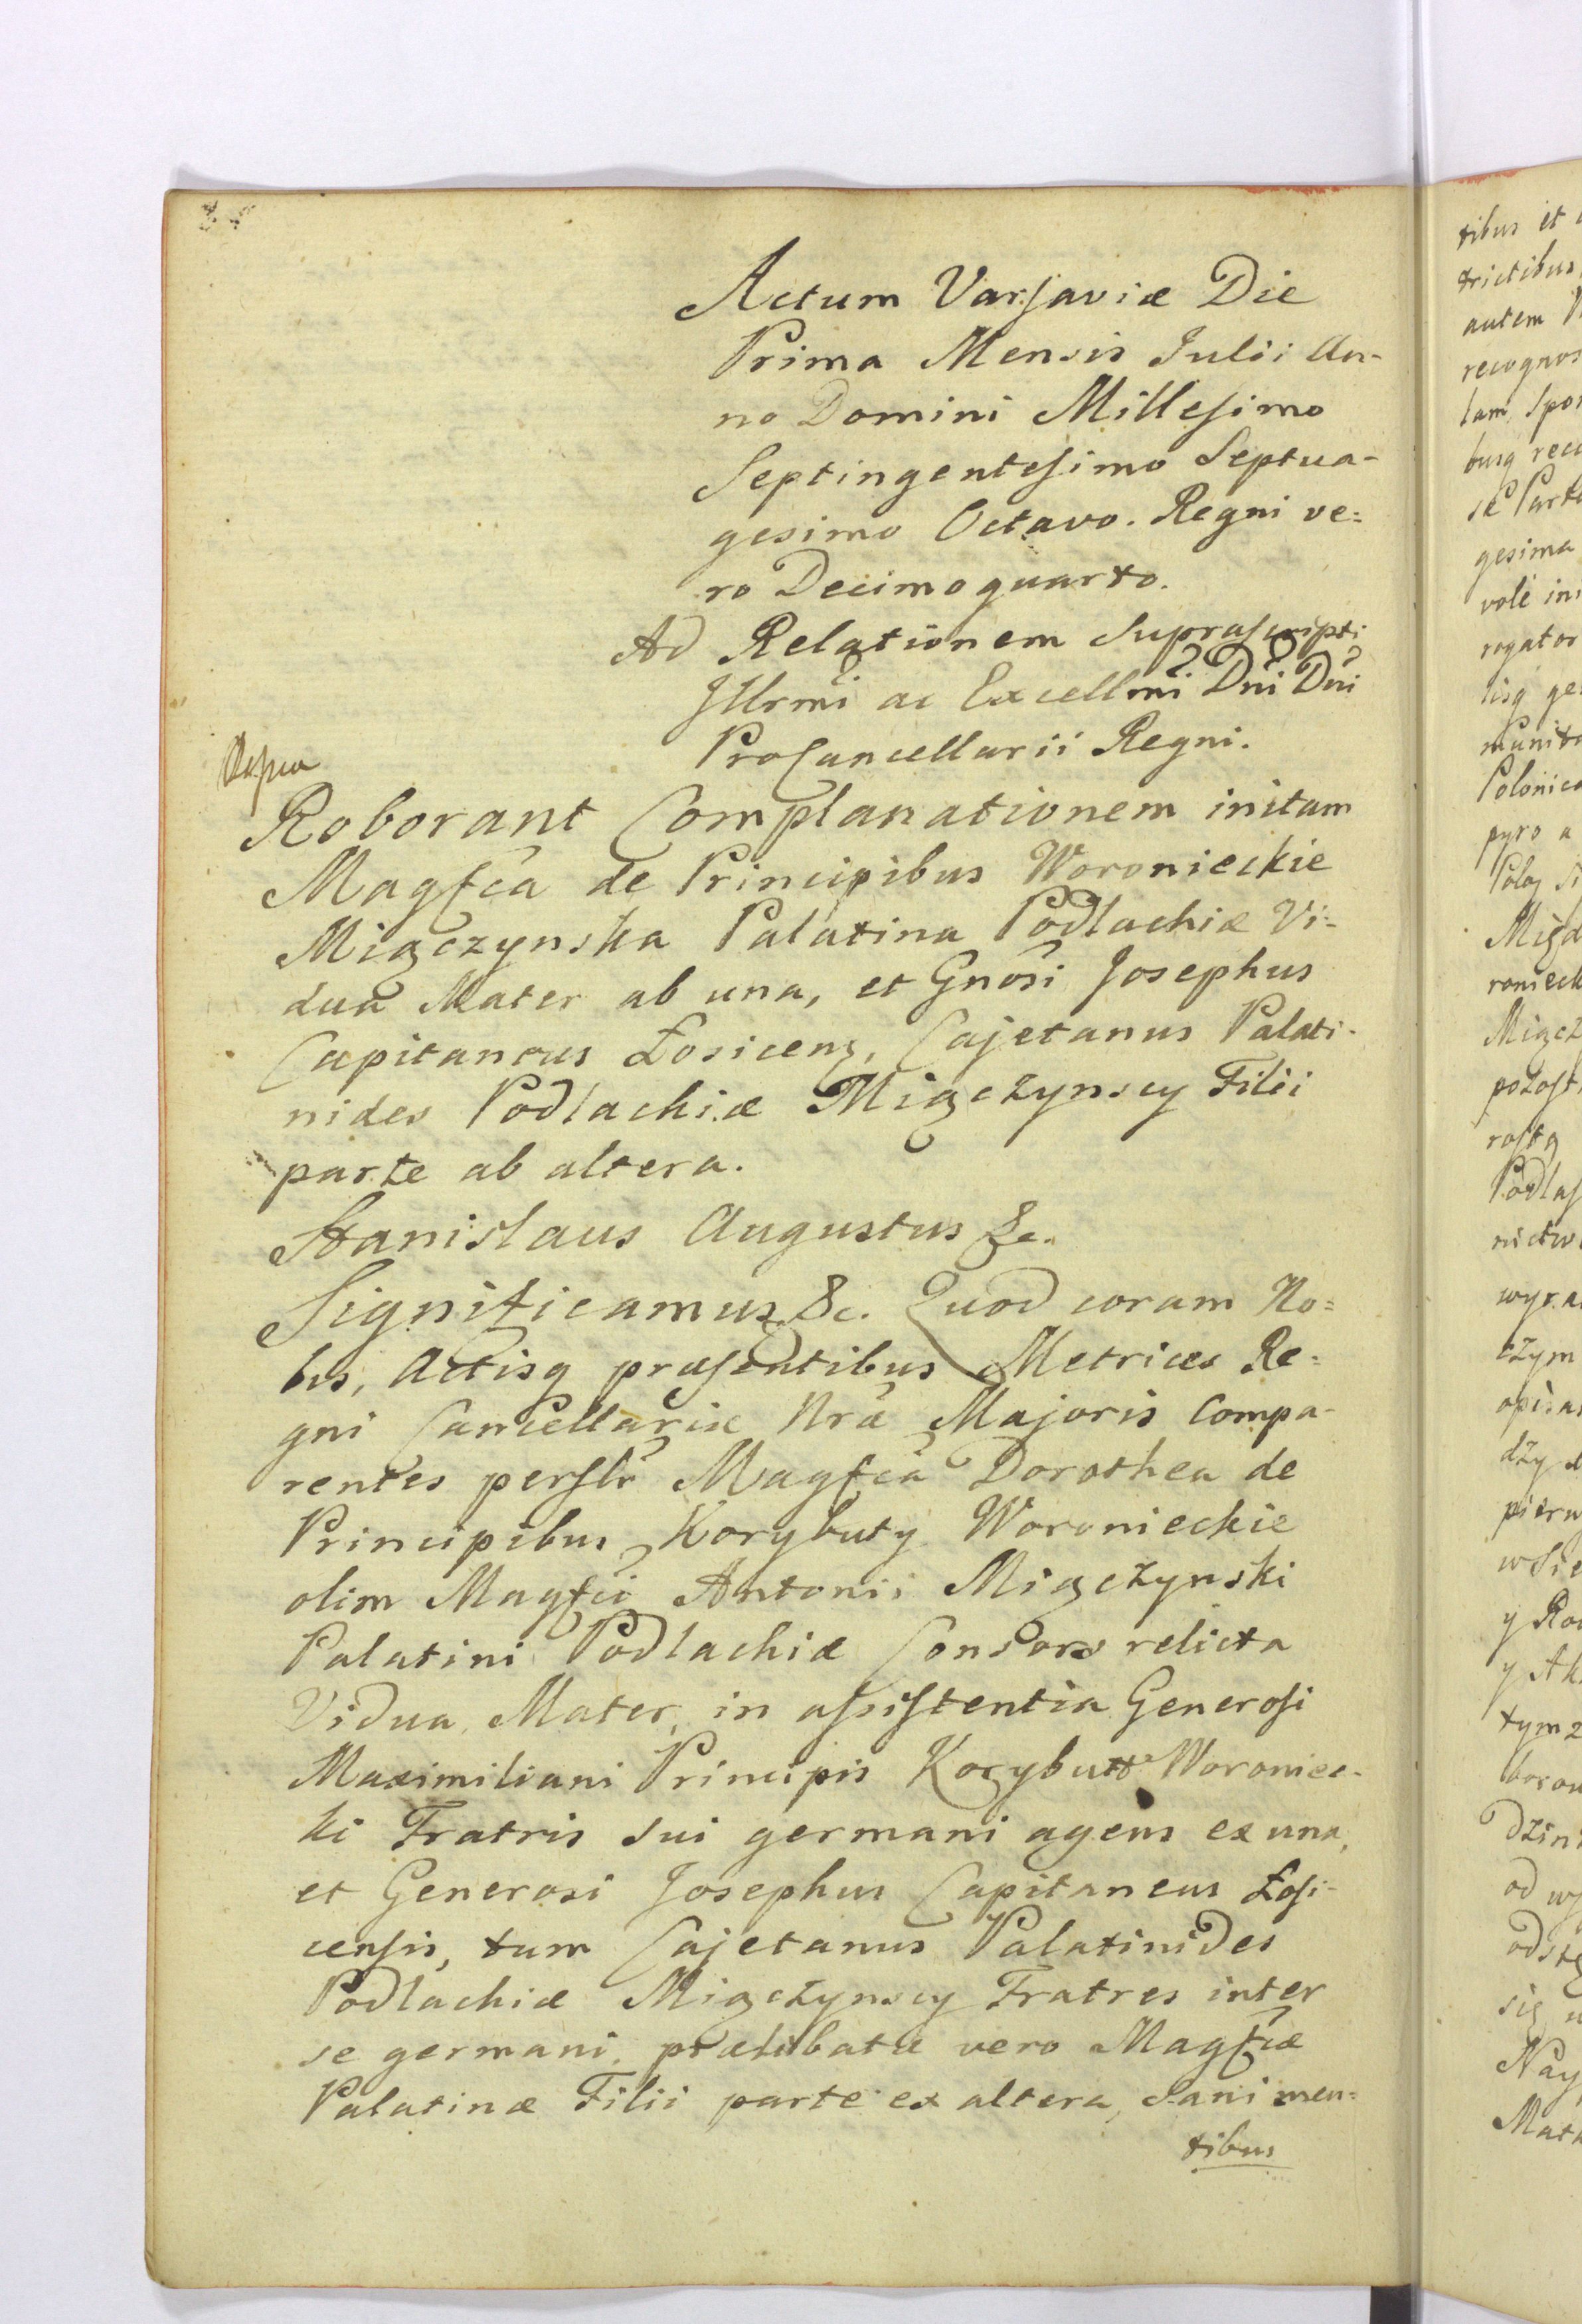 Actum Varsaviæ Die
Prima Mensis Julii An-
no Domini Millesimo
Septingentesimo Septua-
gesimo Octavo. Regni ve=
ro Decimo quarto.
Ad Relationem Suprascripti
Illrmi ac Excellmi Dni Dni
ProCancellarii Regni.
Roborant Complanationem initam
Magfca de Principibus Woronieckie
Miączynska Palatina Podlachiæ Vi=
dua Mater ab una, et Gnosi Josephus
Capitaneus Łosicens, Cajetanus Palati-
nides Podlachiæ Miączynscy Filii
parte ab altera.
Stanislaus Augustus &c.
Significamus &c. Quod coram No=
bis, Actisq præsentibus Metrices Re=
gni Cancellariæ Nræ Majoris Compa-
rentes perslr Magfca Dorothea de
Principibus Korybuty Woronieckie
olim Magfci Antonii Miączynski
Palatini Podlachiæ Consors relicta
Vidua, Mater, in assistentia Generosi
Maximiliani Principis Korybutt Woroniec-
ki Fratris sui germani agens ex una,
et Generosi Josephus Capitaneus Łosi-
censis, tum Cajetanus Palatinides
Podlachiæ Miączynscy Fratres inter
se germani, prælibatæ vero Magfcæ
Palatinæ Filii parte ex altera, sani men=
tibus
tibus et
trictibus
autem
recognos
lam Spon
busq reco
se Parte
gesima
vole in
rogator
lisq ge
munito
Polonico
pyro a
Polog
Migd
roniech
Miącz
pozost
rostą
Podlas
nictw
wyra
czym
opisa
dzy
pierw
w Sie
y Ro
y Ak
tym z
borow
Dzin
od wy
odstę
się
Nay
Matk